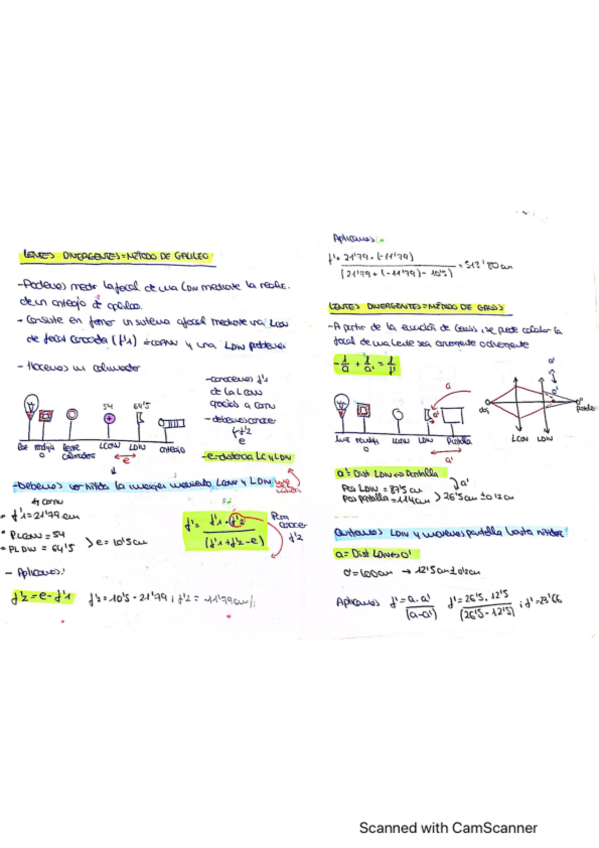 LENTES DIVERGENTES = MÉTODO DE GALILEO
- Podemos medir la focal de una LDIV mediante la realiz.
de un anteojo de galileo.
- Consiste en formar un sistema afocal mediante una LCON
de focal conocida (f'1) y una LDIV problema
- Hacemos un colimador
54
64'5
LCON
LDIV
anteojo
e
- conocemos f'1
de la LCON
- debemos conocer
f'2
e
- e = distancia LC y LDIV
- Debemos ver nítida la imagen moviendo LCON y LDIV
• f'1 = 21'79 cm
• PLCON = 54
• PLDIV = 64'5
> e = 10'5 cm
f' = f'1 · f'2
(f'1 + f'2 - e)
Para
conocer
f'2
- Aplicamos:
f'2 = e - f'1
f'2 = 10'5 - 21'79 ; f'2 = -11'79 cm
Aplicamos:
f' = 21'79 · (-11'79)
(21'79 + (-11'79) - 10'5)
= 513'80 cm
LENTES DIVERGENTES = MÉTODO DE GAUSS
- A partir de la ecuación de Gauss, se puede calcular la
focal de una lente sea convergente o divergente
- 1/a + 1/a' = 1/f'
a
a'
luz
LCON
LDIV
Pantalla
LCON
LDIV
a' = Dist LDIV ↔ Pantalla
Pos LDIV = 87'5 cm
Pos pantalla = 114 cm
> 26'5 cm ± 0'2 cm
a'
Quitamos LDIV y movemos pantalla hasta nitidez
a = Dist LDIV ↔ O'
O' = 100 cm → 12'5 cm ± 0'2 cm
Aplicamos f' = a · a'
(a - a')
f' = 26'5 · 12'5
(26'5 - 12'5)
; f' = 23'66
Scanned with CamScanner